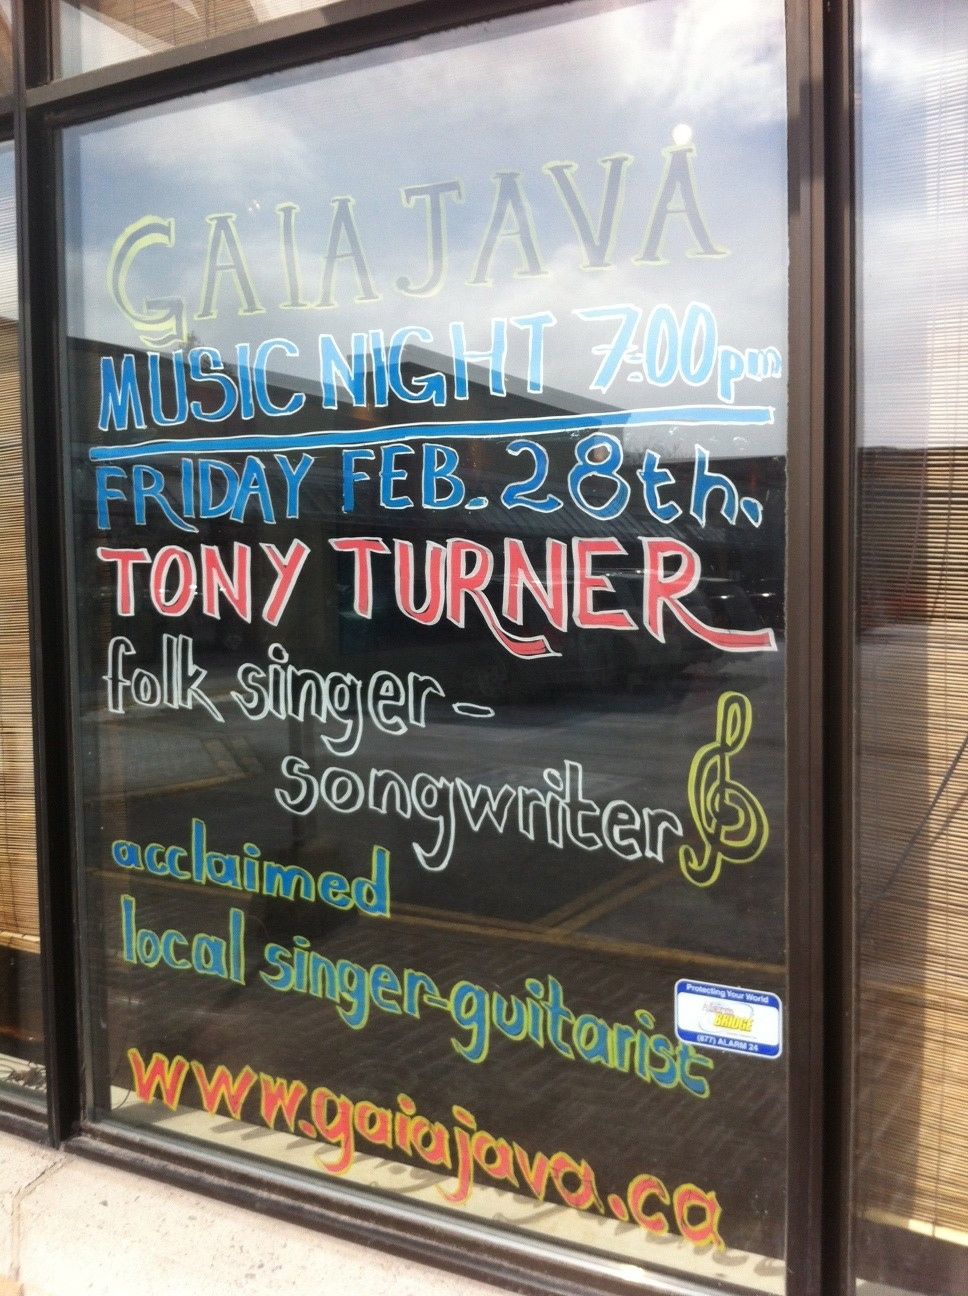 GAIAJAVA
MUSIC NIGHT 7:00pm
FRIDAY FEB. 28th.
TONY TURNER
folk singer-
songwriter
acclaimed
local singer-guitarist
Protecting Your World
BRIDGE
(877) ALARM 24
www.gaiajava.ca